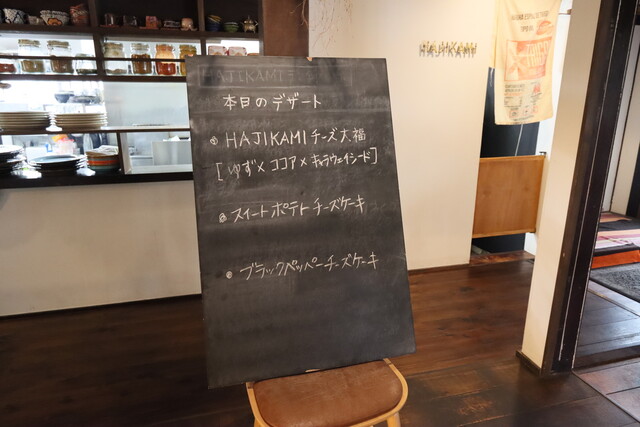 HAJIKAMI
HAJIKAMI
本日のデザート
HAJIKAMIチーズ大福
[ゆず×ココア×キャラウェイシード]
スイートポテトチーズケーキ
ブラックペッパーチーズケーキ